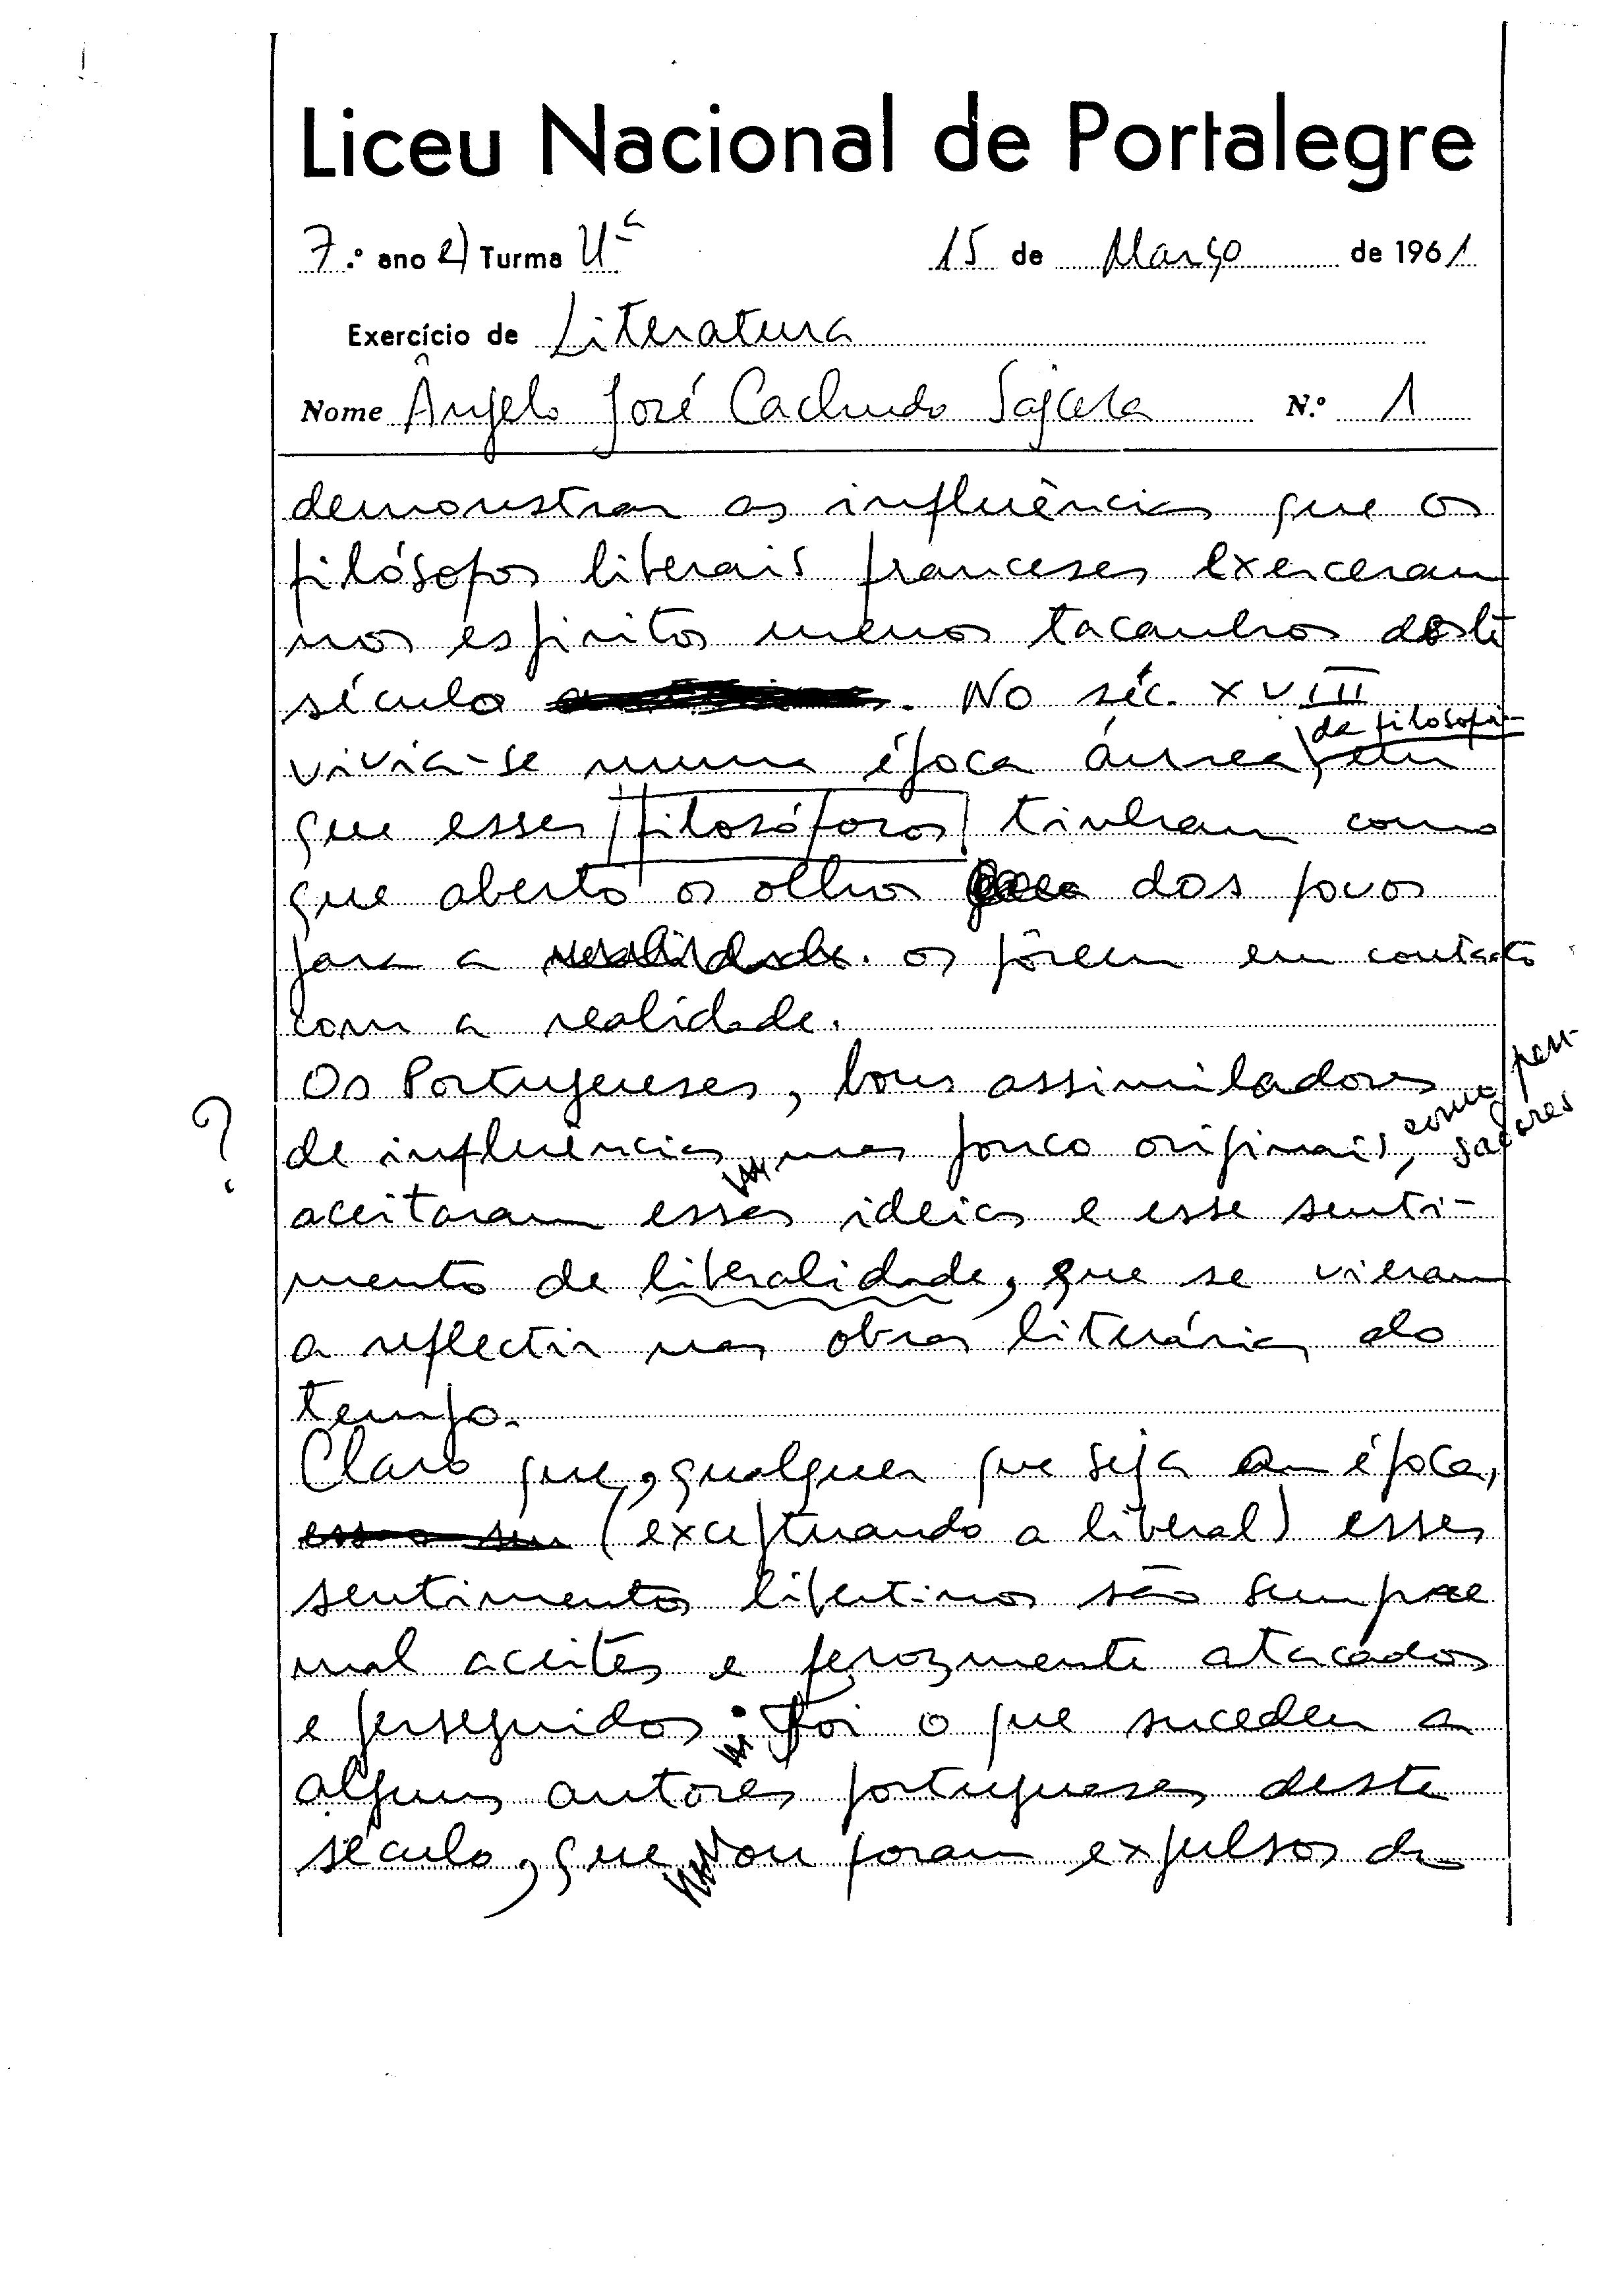 Liceu Nacional de Portalegre
7.º ano e) Turma Uª 15 de Março de 1961
Exercício de Literatura
Nome Ângelo José Cachudo Sajara N.º 1
demonstrar as influências que os
filósofos liberais franceses exerceram
nos espíritos menos tacanhos deste
século . No séc. XVIII
da filosofia
vivia-se numa época áurea, em
que esses filosóforos tinham como
que aberto os olhos dos povos
para a realidade. os pôrem em contacto
com a realidade.
Os Portugueses, bons assimiladores
? de influências, mas pouco originais, como pensadores
aceitaram essas ideias e esse senti-
mento de liberalidade, que se vieram
a reflectir nas obras literárias do
tempo.
Claro que, qualquer que seja a época,
(exceptuando a liberal) esses
sentimentos libertinos são sempre
mal aceites e ferozmente atacados
e perseguidos. Foi o que sucedeu a
alguns autores portugueses deste
século, que ou foram expulsos do